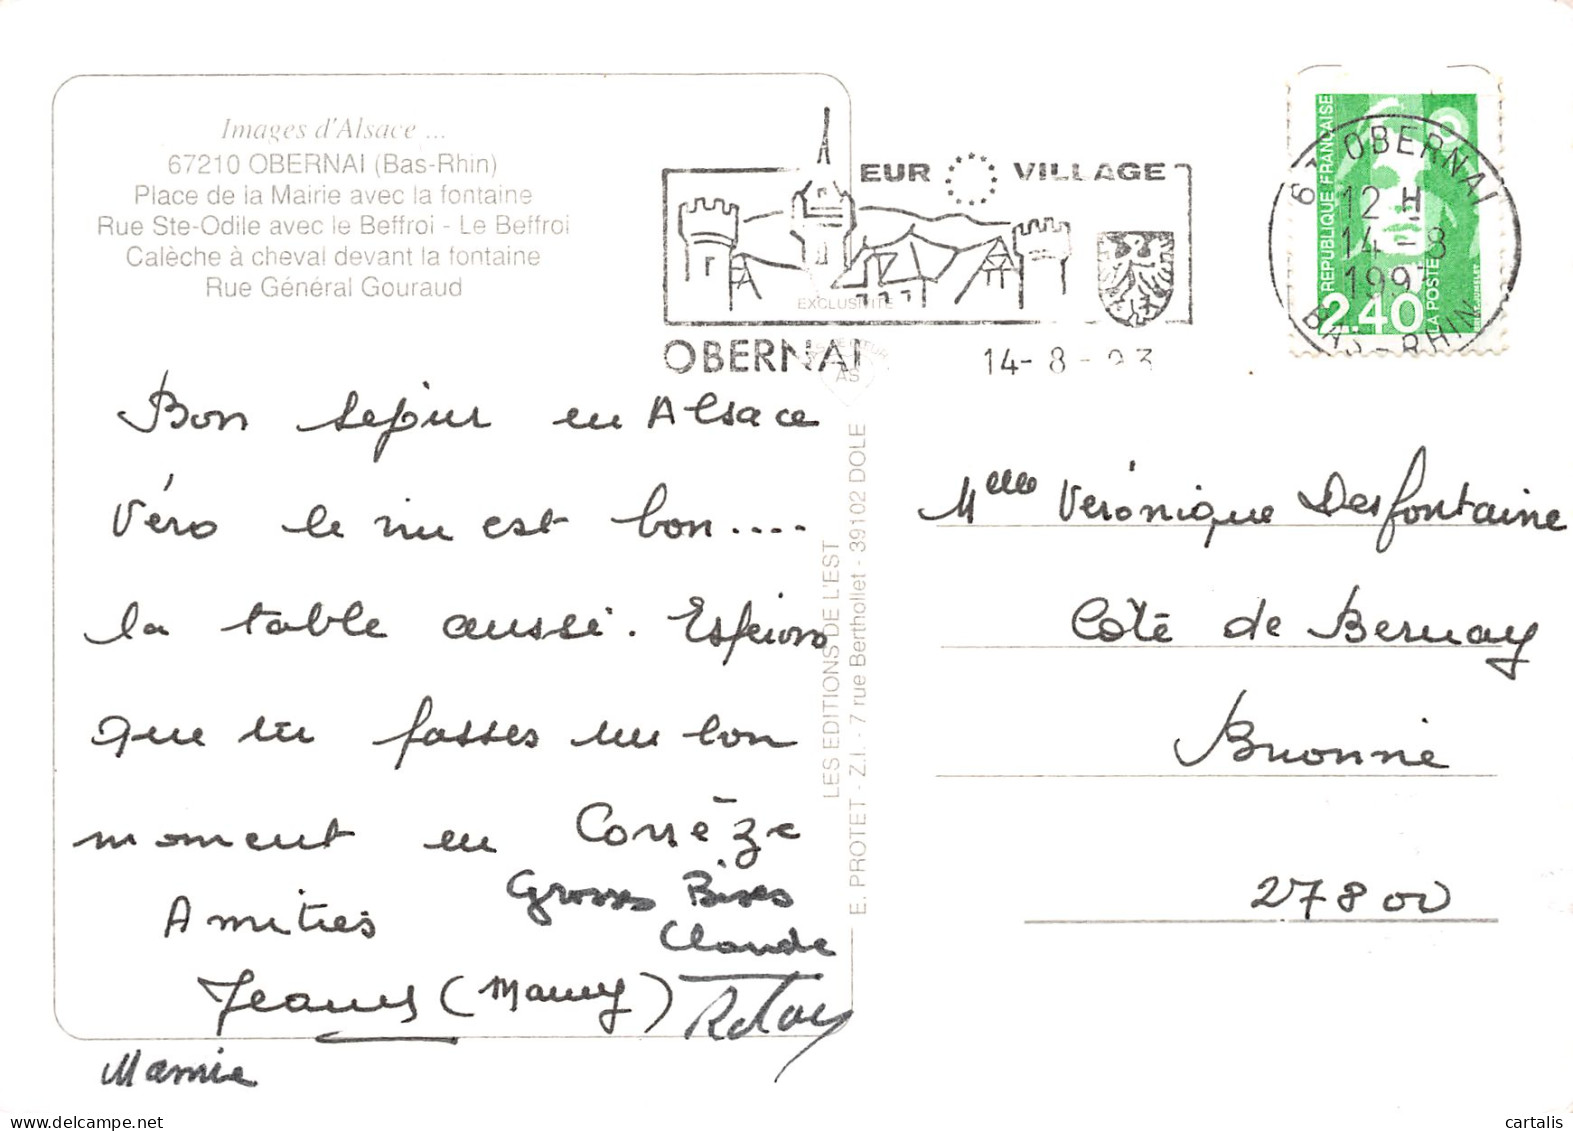 Images d'Alsace ...
67210 OBERNAI (Bas-Rhin)
Place de la Mairie avec la fontaine
Rue Ste-Odile avec le Beffroi - Le Beffroi
Calèche à cheval devant la fontaine
Rue Général Gouraud
EUR VILLAGE
EXCLUSIVITE
OBERNAI 14-8-93
67 OBERNAI
12 H
14-8
1993
BAS-RHIN
REPUBLIQUE FRANÇAISE
2.40
LA POSTE
Bon séjour en Alsace
Véro le vin est bon....
la table aussi. Espérons
que tu passes un bon
moment en Corrèze
Amitiés
Grosses Bises
Claude
(Mamy)
Mamie
LES EDITIONS DE L'EST
E. PROTET - Z.I. - 7 rue Berthollet - 39102 DOLE
Melle Véronique Desfontaine
Côte de Bernay
Brionne
27800
cartalis